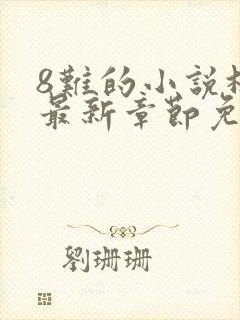 8難的小說
最新章節免
劉珊珊